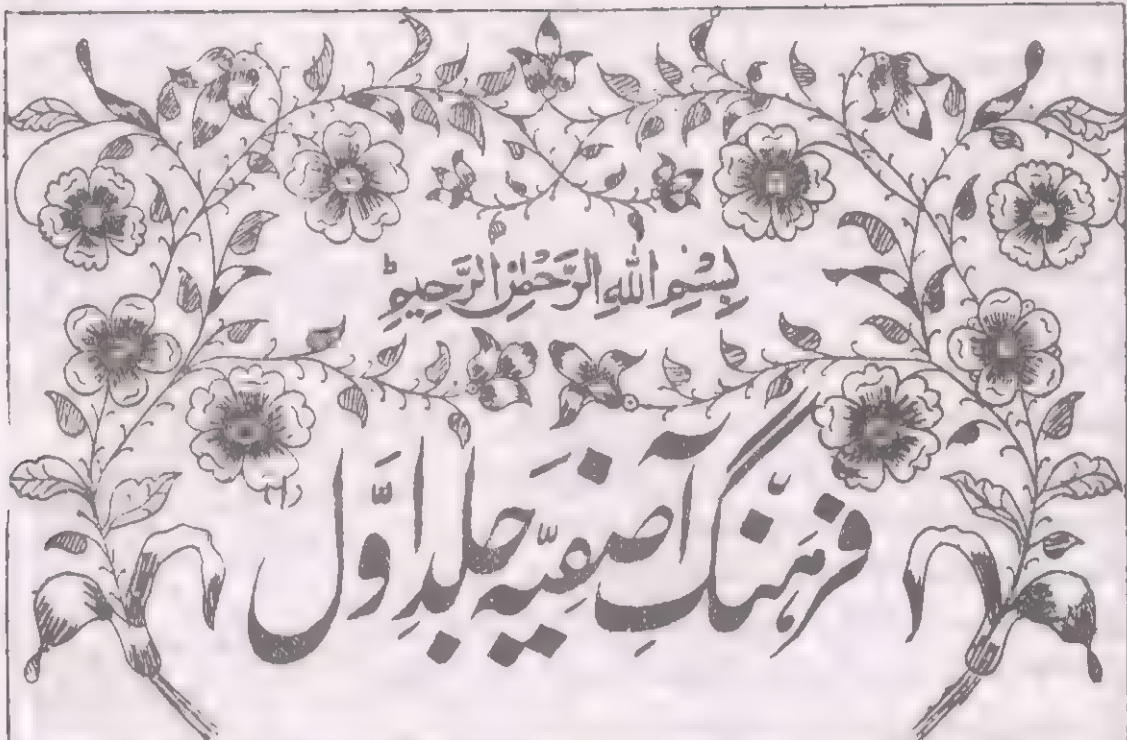 بِسْمِ اللهِ الرَّحْمٰنِ الرَّحِيْمِ ط
فرہنگِ آصفیّہ جلد اوّل